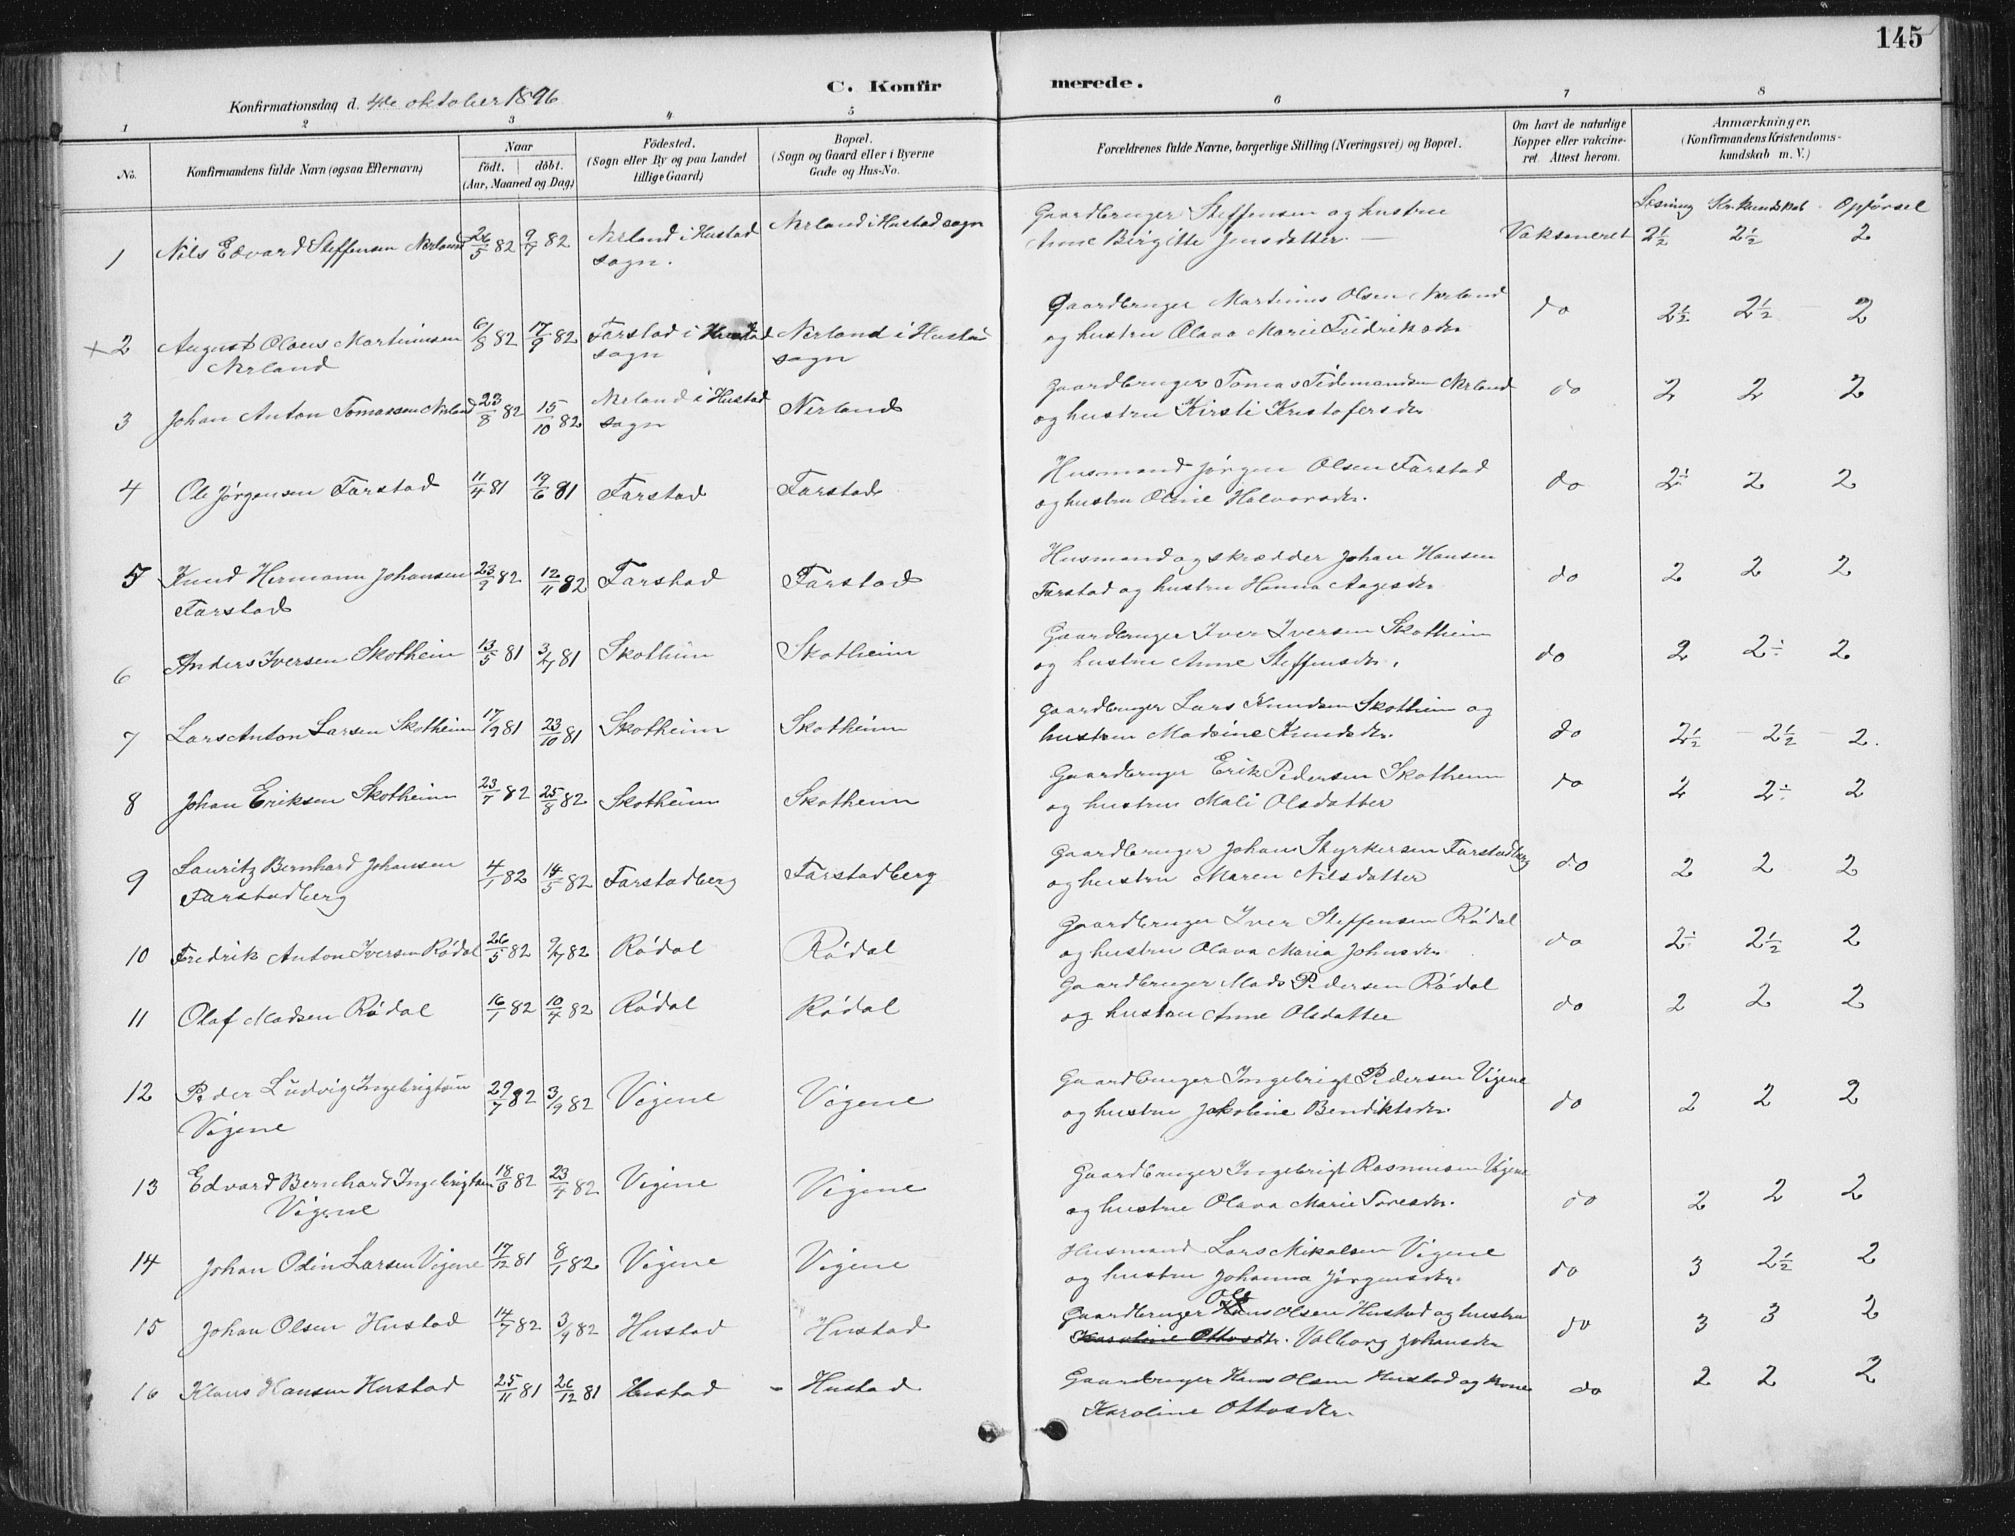 145
C. Konfirmerede.
Konfirmationsdag d. 4de oktober 1896
1 2 3 4 5 6 7 8
No.
Konfirmandens fulde Navn (ogsaa Efternavn)
Naar
født. døbt.
(Aar, Maaned og Dag)
Fødested.
(Sogn eller By og paa Landet
tillige Gaard)
Bopæl.
(Sogn og Gaard eller i Byerne
Gade og Hus-No.
Forældrenes fulde Navne, borgerlige Stilling (Næringsvei) og Bopæl.
Om havt de naturlige
Kopper eller vakcine-
ret. Attest herom.
Anmærkninger.
(Konfirmandens Kristendoms-
kundskab m. V.)
Læsning Kr. kundskab Opførsel
1 Nils Edvard Steffensen Nerland 26/5 82 9/7 82 Nerland i Hustad Nerland i Hustad sogn Gaardbruger Steffensen og hustru Vaksineret 2½ 2½ 2
sogn. Anne Birgitte Jensdatter. —
+ 2 August Olaus Martinusen 6/8 82 17/9 82 Farstad i Hustad Nerland i Hustad Gaardbruger Martinus Olsen Nerland do 2½ 2½ 2
Nerland sogn sogn og hustru Olava Marie Fredriksdr
3 Johan Anton Tomassen Nerland 23/8 82 15/10 82 Nerland i Hustad Nerland Gaardbruger Tomas Tidemandsen Nerland do 2 2 2
sogn og hustru Kirsti Kristofersdr
4 Ole Jørgensen Farstad 11/4 81 19/6 81 Farstad Farstad Husmand Jørgen Olsen Farstad do 2÷ 2 2
og hustru Oline Halvorsdr.
5 Knud Hermann Johansen 23/9 82 12/11 82 Farstad Farstad Husmand og skrædder Johan Hansen do 2 2 2
Farstad Farstad og hustru Hanna Aagesdr
6 Anders Iversen Skotheim 13/5 81 3/7 81 Skotheim Skotheim Gaardbruger Iver Iversen Skotheim do 2 2÷ 2
og hustru Anne Steffensdr.
7 Lars Anton Larsen Skotheim 17/9 81 23/10 81 Skotheim Skotheim Gaardbruger Lars Knudsen Skotheim og do 2½ - 2½ - 2.
hustru Madsine Knudsdr.
8 Johan Eriksen Skotheim 23/7 82 25/8 82 Skotheim Skotheim Gaardbruger Erik Pedersen Skotheim do 2 2÷ 2
og hustru Mali Olsdatter
9 Lauritz Bernhard Johansen 4/1 82 14/5 82 Farstadberg Farstadberg Gaardbruger Johan Styrkersen Farstadberg do 2 2 2
Farstadberg og hustru Maren Nilsdatter
10 Fredrik Anton Iversen Rødal 26/5 82 9/7 82 Rødal Rødal Gaardbruger Iver Steffensen Rødal do 2÷ 2½ 2
og hustru Olava Maria Johnsdr.
11 Olaf Madsen Rødal 16/1 82 10/4 82 Rødal Rødal Gaardbruger Mads Pedersen Rødal do 2 2 2
og hustru Anne Olsdatter
12 Peder Ludvig Ingebrigtsen 29/7 82 3/9 82 Vigene Vigene Gaardbruger Ingebrigt Pedersen Vigene do 2 2 2
Vigene og hustru Jakobine Bendiktsdr.
13 Edvard Bernhard Ingebrigtsen 18/3 82 23/4 82 Vigene Vigene Gaardbruger Ingebrigt Rasmusen Vigene do 2 2 2
Vigene og hustru Olava Marie Toresdr.
14 Johan Odin Larsen Vigene 17/12 81 8/1 82 Vigene Vigene Husmand Lars Nikolsen Vigene do 3 2½ 2
og hustru Johanna Jørgensdr.
15 Johan Olsen Hustad 14/7 82 3/9 82 Hustad Hustad Gaardbruger Hans Ole Olsen Hustad og hustru do 3 3 2
Karoline Ottosdr. Valborg Johansdr
16 Klaus Hansen Hustad 25/11 81 26/12 81 Hustad - Hustad Gaardbruger Hans Olsen Hustad og kone do 2 2 2
Karoline Ottosdr.